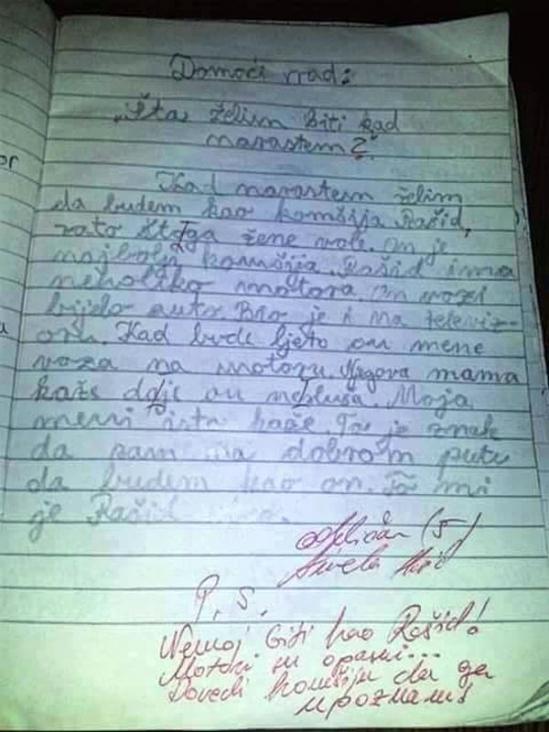 Domaći rad:
„Šta želim biti kad
narastem?"
Kad narastem želim
da budem kao komšija Rašid,
zato što ga žene vole. On je
najbolji komšija. Rašid ima
nekoliko motora. On vozi
bijelo auto. Bio je i na televiz-
oru. Kad bude ljeto on mene
voza na motoru. Njegova mama
kaže da je on ndluša. Moja
meni isto kaže. To je znak
da sam na dobrom putu
da budem kao on. To mi
je Rašid
Odličan (5)
P. S.
Nemoj biti kao Rašid!
Motori su opasni...
Dovedi komšiju da ga
upoznamo
or
u